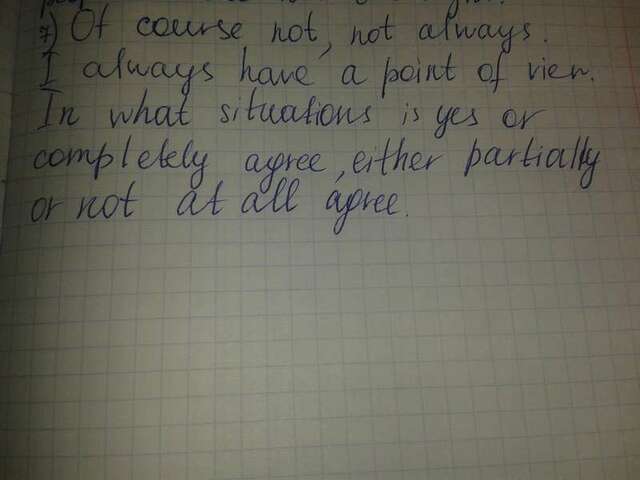 7) Of course not, not always.
I always have a point of view.
In what situations is yes or
completely agree, either partially
or not at all agree.